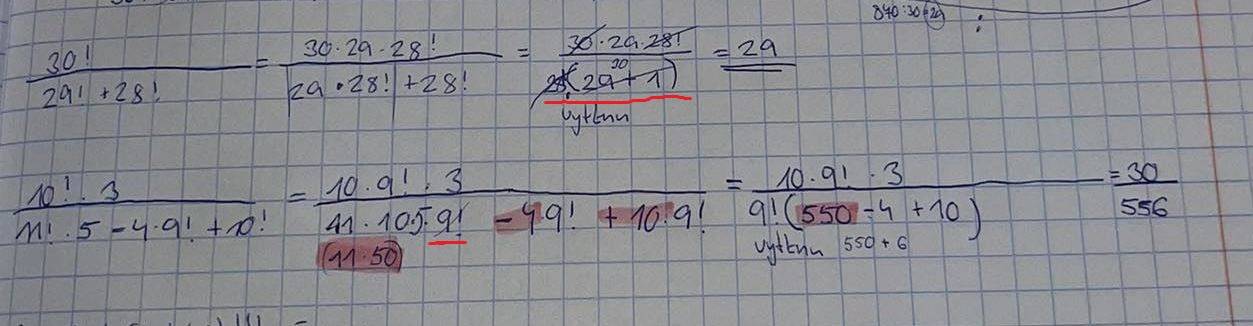 840:30=29 :
30! / 29! + 28! = 30·29·28! / 29·28! + 28! = 30·29·28! / 28!(29+1) 30 = 29
vytknu
10!·3 / 11!·5-4·9!+10! = 10·9!·3 / 11·10·5·9! -4·9! +10·9! = 10·9!·3 / 9!(550-4+10) = 30 / 556
(11·50) vytknu 550+6